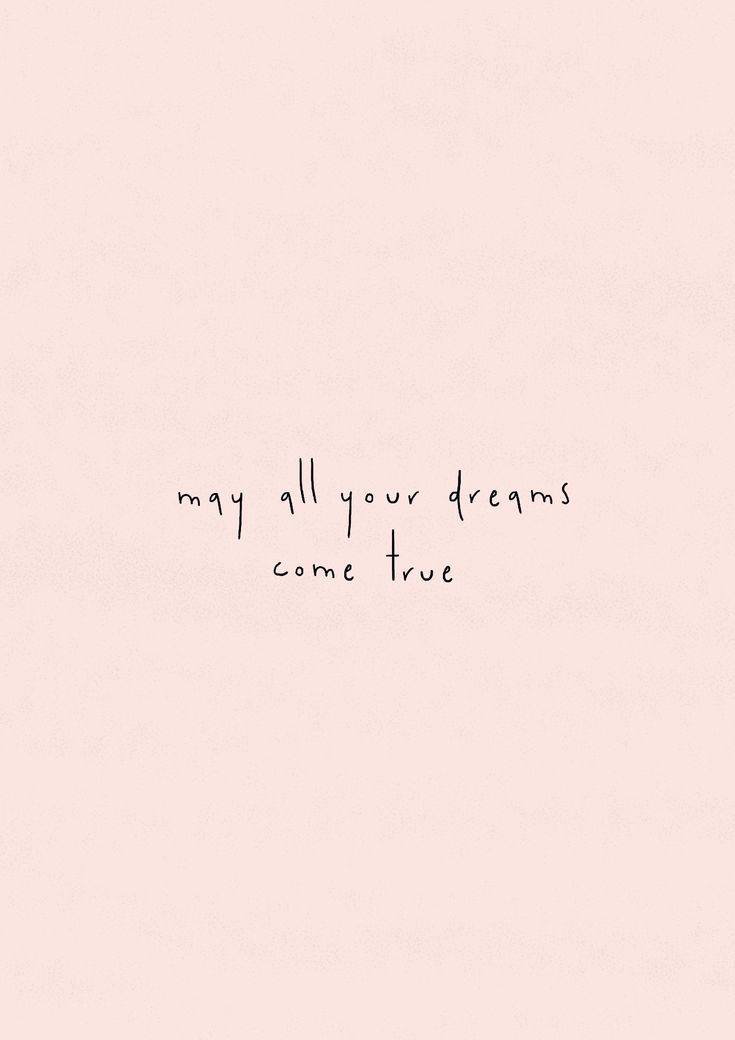 may all your dreams
come true